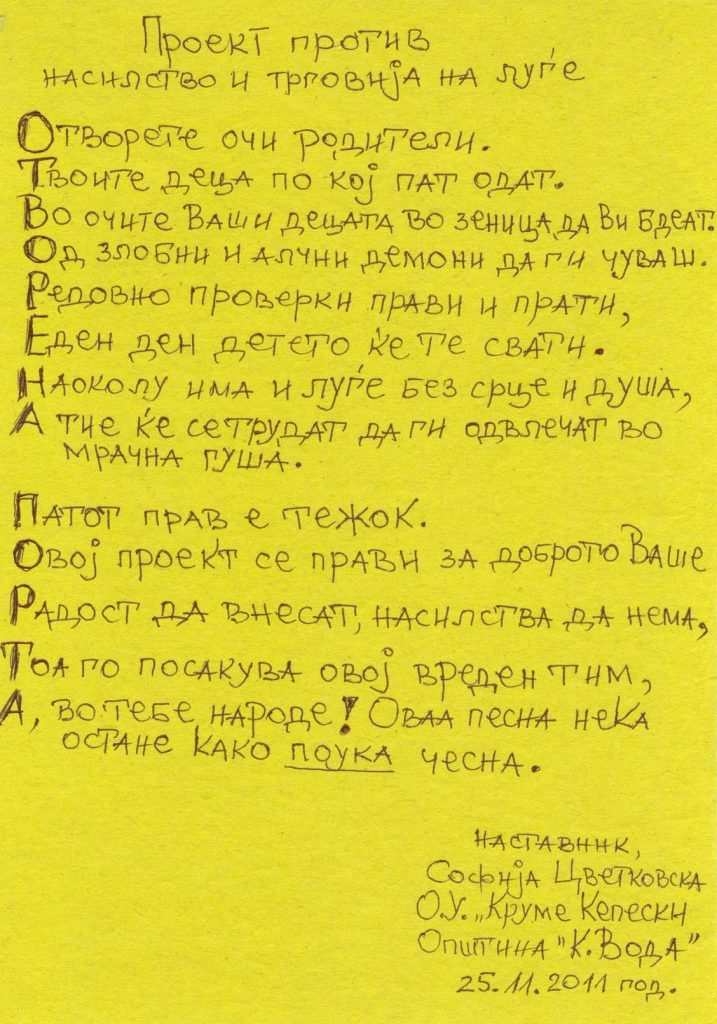 Проект против
насилство и трговија на луѓе
Отворете очи родители.
Твоите деца по кој пат одат.
Во очите Ваши децата во зеница да Ви бдеат.
Од злобни и алчни демони да ги чуваш.
Редовно проверки прави и прати,
Еден ден детето ќе те свати.
Наоколу има и луѓе без срце и душа,
А тие ќе се трудат да ги одвлечат во
мрачна гуша.
Патот прав е тежок.
Овој проект се прави за доброто Ваше
Радост да внесат, насилства да нема,
Тоа го посакува овој вреден тим,
А, во тебе народе! Оваа песна нека
остане како поука чесна.
наставник,
Софија Цветковска
О.У. „Круме Кепески
Општина "К. Вода"
25.11.2011 год.